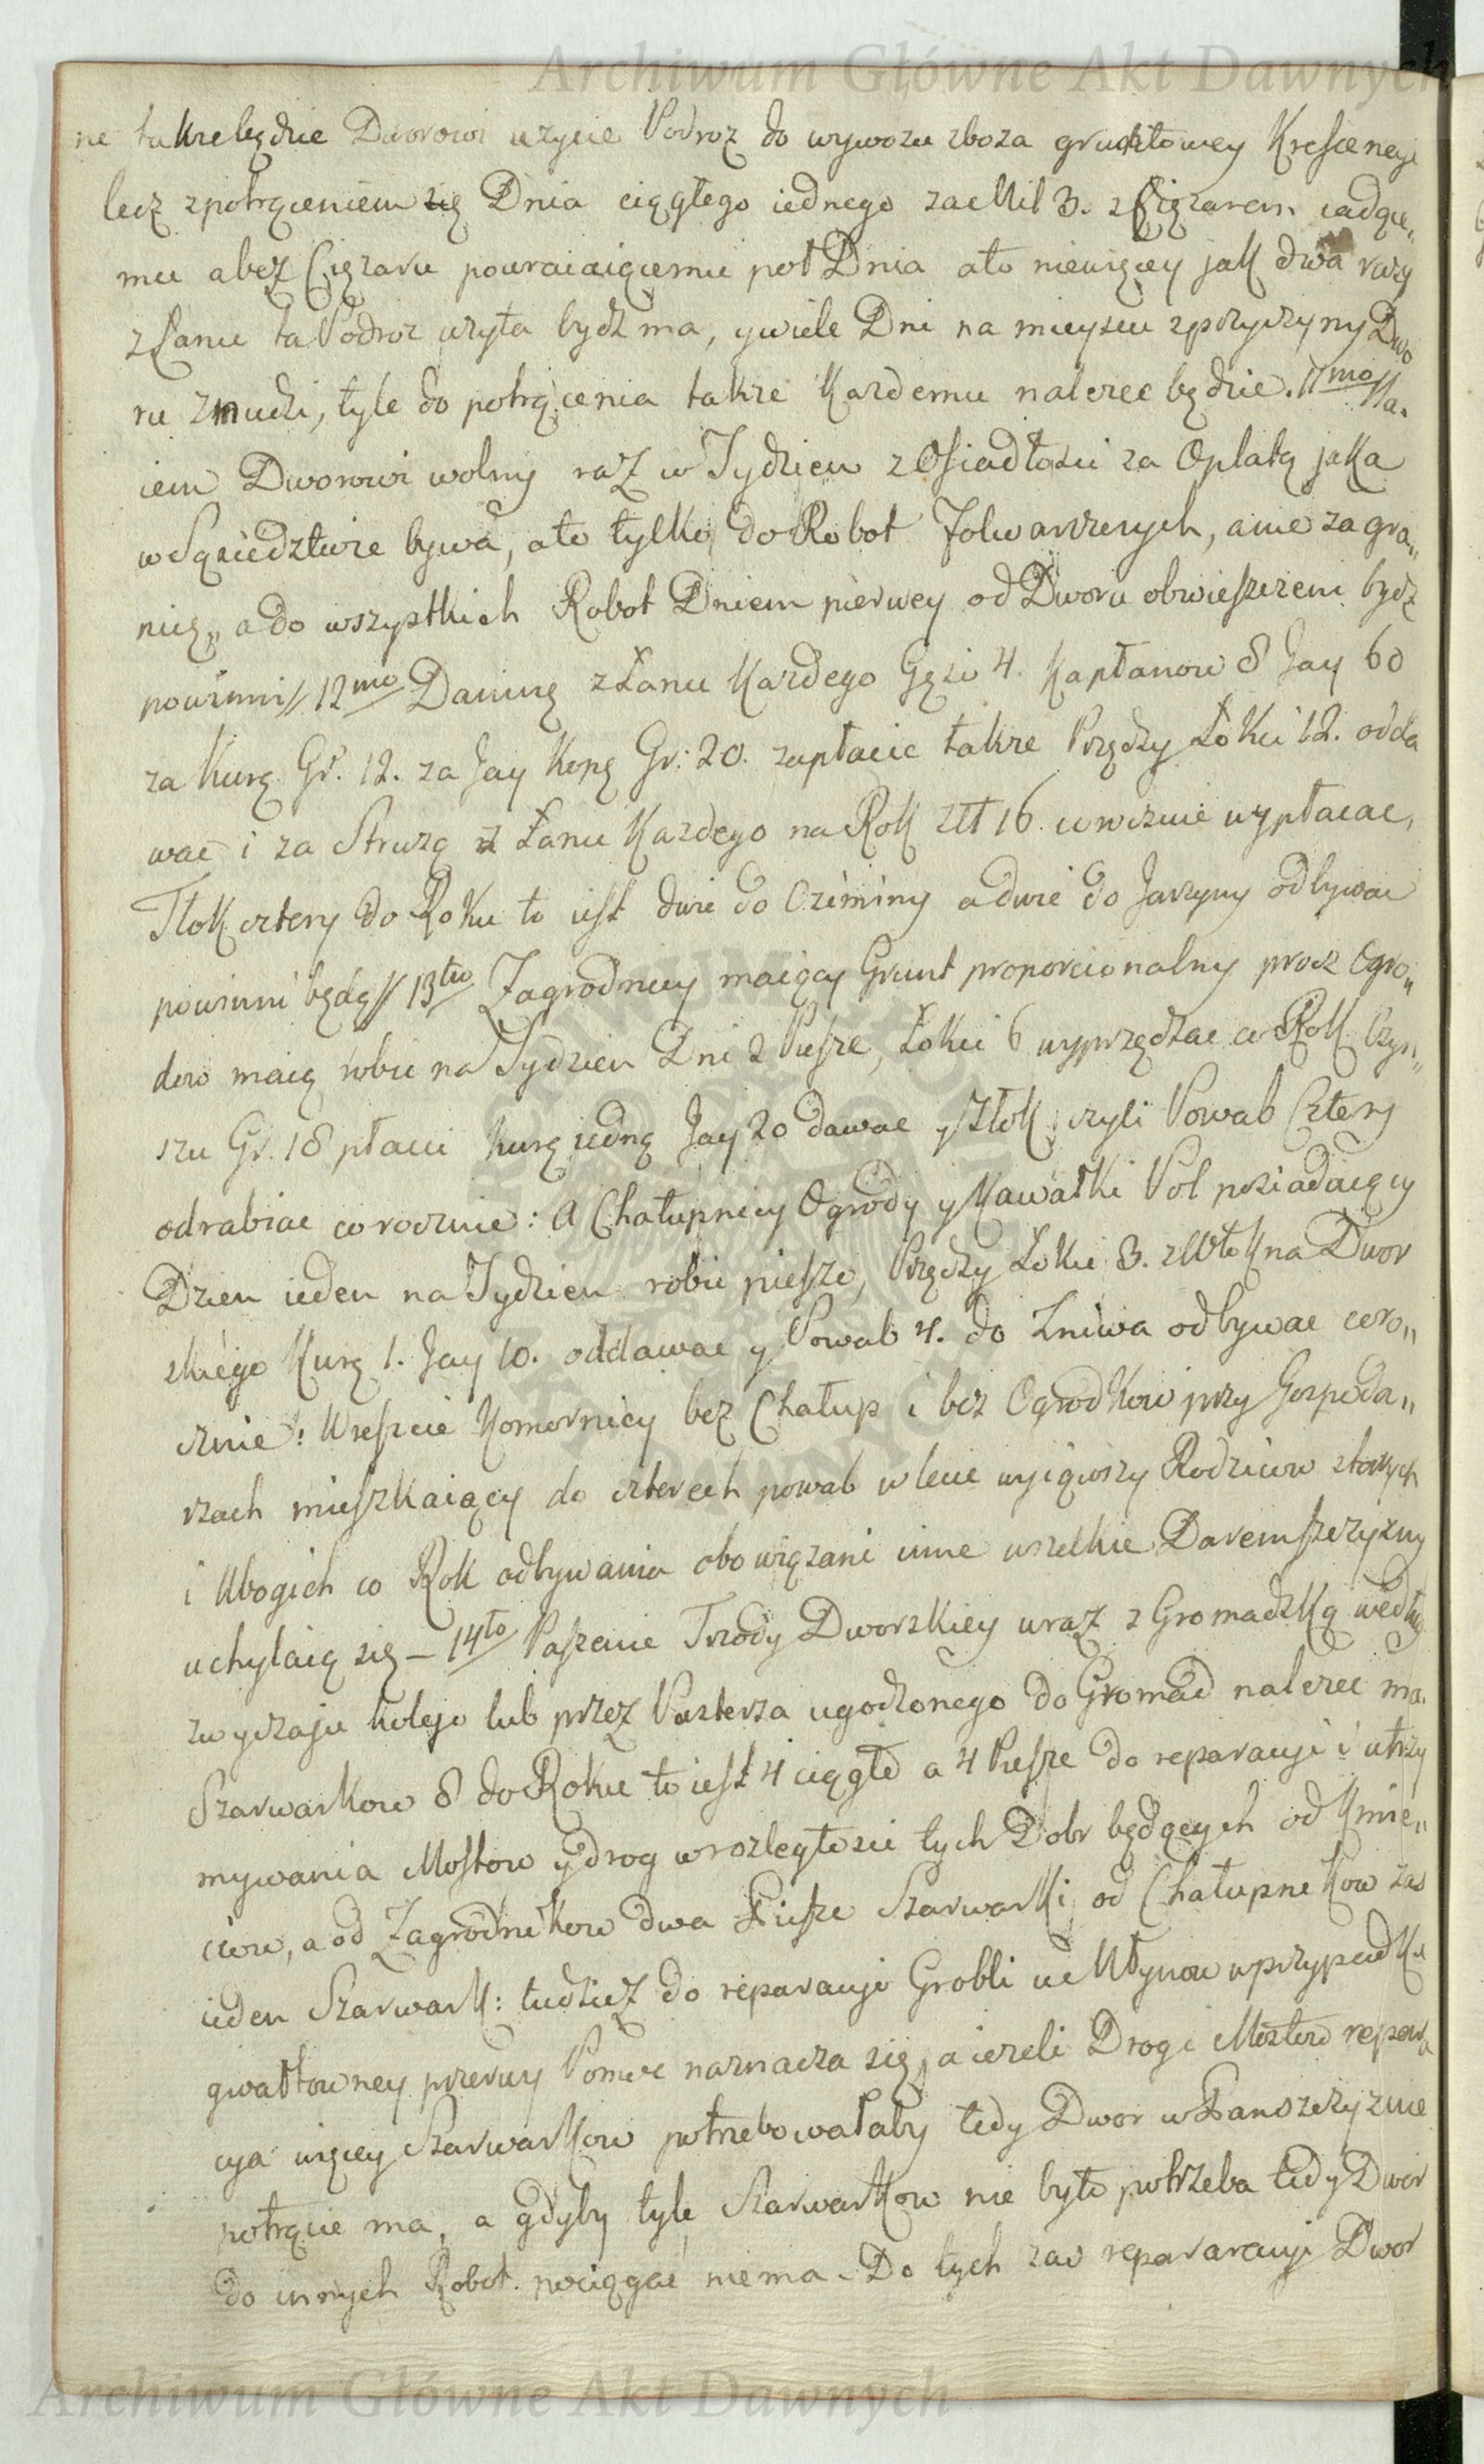 Archiwum Główne Akt Dawnych
ne takze będzie Dworowi uzycie Podroz do wywozu zboza gruntowey Krescencyi
lecz zpotrąceniem się Dnia ciągłego iednego za Mil 3. z Cięzarem iadące„
mu a bez Cięzaru powracaiącemu poł Dnia a to niewięcey jak dwa razy
z Łanu ta Podroz uzyta bydz ma, y wiele Dni na mieyscu z przyczyny Dwo
ru zmudzi, tyle do potrącenia takze Kazdemu nalezec będzie. 11mo Na„
iem Dworowi wolny raz w Tydzien z Osiadłosci za Opłatą jaka
w Sąsiedztwie bywa, a to tylko do Robot Folwarcznych, a nie zagra„
nicę, a do wszystkich Robot Dniem pierwey od Dworu obwieszczeni bydz
powinni // 12mo Daninę z Łanu Kazdego Gęsi 4. Kapłonow 8 Jay 60
za Kurę Gr. 12. za Jay Kopę Gr: 20. zapłacic takze Przędzy Łokci 12. odda
wac i za Struzą z Łanu Kazdego na Rok Złł 16. corocznie wypłacac,
Tłok cztery do Roku to iest dwie do Oziminy a dwie do Jarzyny odbywac
powinni będą // 13tio Zagrodnicy maiący Grunt proporcionalny procz Ogro„
dow maią robic na Tydzien Dni 2 Piesze, Łokci 6 wyprzędzac co Rok Czyn„
szu Gr. 18 płacic Kurę iedną Jay 20 dawac y Tłok czyli Powab Cztery
odrabiac corocznie: A Chałupnicy Ogrody y Kawałki Pol posiadaiący
Dzien ieden na Tydzien robic pieszo, Przędzy Łokci 3. z Włokna Dwor
skiego Kurę 1. Jay 10. oddawac y Powab 4. do Zniwa odbywac coro„
cznie: Wreszcie Komornicy bez Chałup i bez Ogrodkow przy Gospoda„
rzach mieszkaiący do czterech powab w lecie wyiąwszy Rodzicow starych
i Ubogich co Rok odbywania obowiązani inne wszelkie Daremszczyzny
uchylaią się – 14to Paszenie Trzody Dworskiey wraz z Gromadzką według
zwyczaju koleją lub przez Pasterza ugodzonego do Gromad nalezec ma.
Szarwarkow 8 do Roku to iest 4 ciągłe a 4 Piesze do reparacyi i utrzy
mywania Mostow y drog w rozległosci tych Dobr będących od Kmie„
ciow, a od Zagrodnikow dwa Piesze Szarwarki, od Chałupnikow zas
ieden Szarwark: tudziez do reparacyi Grobli u Młynow w przypadku
gwałtowney przerwy Pomoc naznacza się, a iezeli Drogi Mostow repera
cya więcey Szarwarkow potrzebowałaby tedy Dwor w Panszczyznie
potrącic ma, a gdyby tyle Szarwarkow nie było potrzeba tedy Dwor
do innych Robot pociągac niema – Do tych zas reparacyi Dwor
Archiwum Główne Akt Dawnych